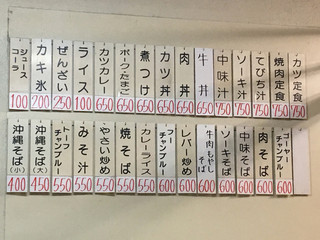 ジュース
コーラ
100
カキ氷
200
ぜんざい
250
ライス
100
カツカレー
650
ポークたまご
650
煮つけ
650
カツ丼
650
肉丼
650
牛丼
650
中味汁
750
ソーキ汁
750
てびち汁
750
焼肉定食
750
カツ定食
750
沖縄そば(小)
400
沖縄そば(大)
450
トーフ
チャンプルー
550
みそ汁
550
やさい炒め
550
焼そば
550
カレーライス
550
フー
チャンプルー
600
レバー炒め
600
牛肉もやし
そば
600
ソーキそば
600
中味そば
600
肉そば
600
ゴーヤー
チャンプルー
600